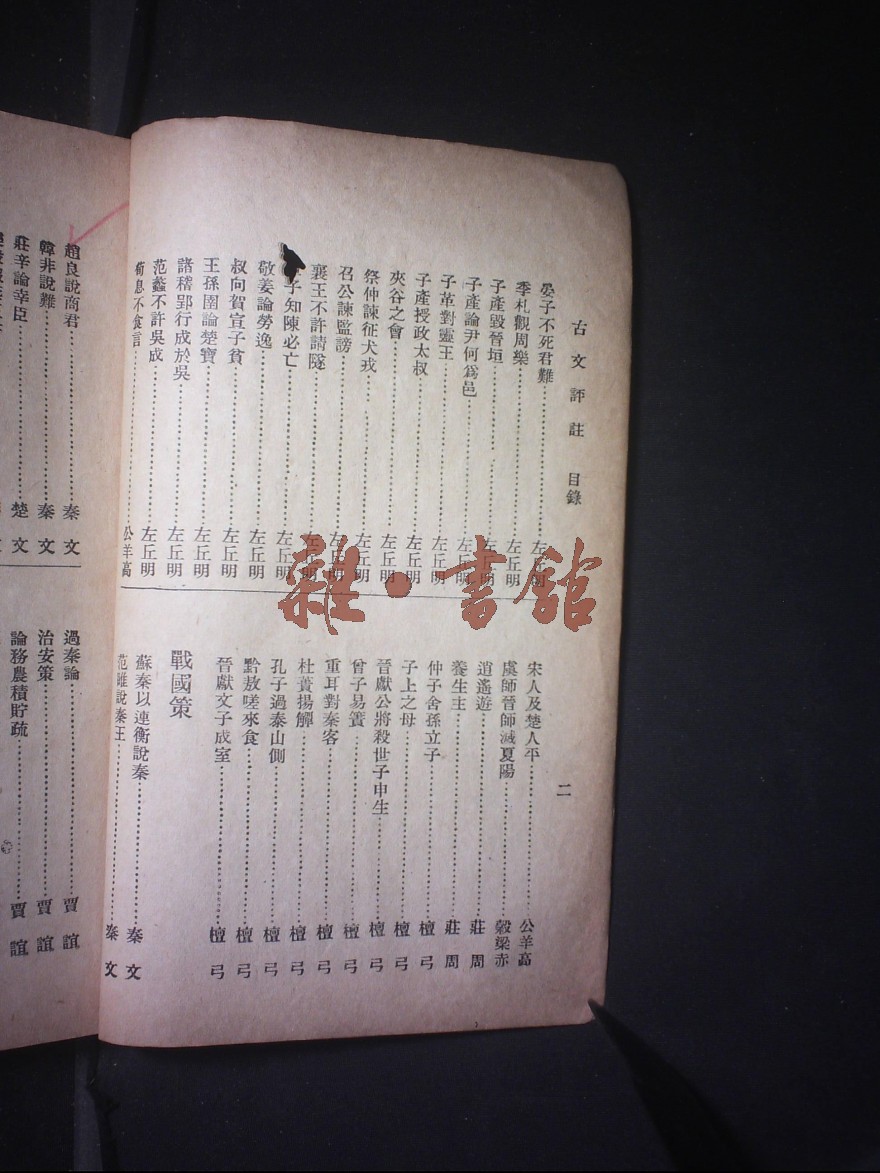 古文評註 目錄
二
晏子不死君難 左丘明
季札觀周樂 左丘明
子產毀晉垣 左丘明
子產論尹何爲邑 左丘明
子革對靈王 左丘明
子產授政太叔 左丘明
夾谷之會 左丘明
祭仲諫征犬戎 左丘明
召公諫監謗 左丘明
襄王不許請隧 左丘明
子知陳必亡 左丘明
敬姜論勞逸 左丘明
叔向賀宣子貧 左丘明
王孫圉論楚寶 左丘明
諸稽郢行成於吳 左丘明
范蠡不許吳成 左丘明
荀息不食言 公羊高
宋人及楚人平 公羊高
虞師晉師滅夏陽 穀梁赤
逍遙遊 莊周
養生主 莊周
仲子舍孫立子 檀弓
子上之母 檀弓
晉獻公將殺世子申生 檀弓
曾子易簀 檀弓
重耳對秦客 檀弓
杜蕢揚觶 檀弓
孔子過泰山側 檀弓
黔敖嗟來食 檀弓
晉獻文子成室 檀弓
戰國策
蘇秦以連衡說秦 秦文
范雎說秦王 秦文
趙良說商君 秦文
韓非說難 秦文
莊辛論幸臣 楚文
過秦論 賈誼
治安策 賈誼
論務農積貯疏 賈誼
雜·書館